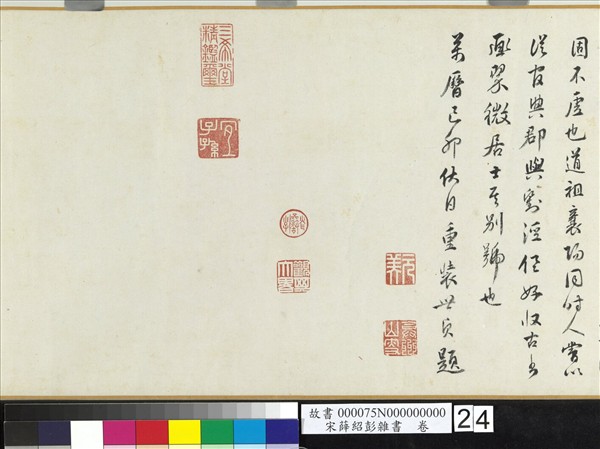 固不虛也道祖襄陽同時人嘗以
從官典郡與劉涇俱好收古書
画翠微居士其別號也
萬曆己卯伏日重裝世貞題
元美
三希堂精鑑璽
宜子孫
故書 000075N000000000
宋薛紹彭雜書 卷
24